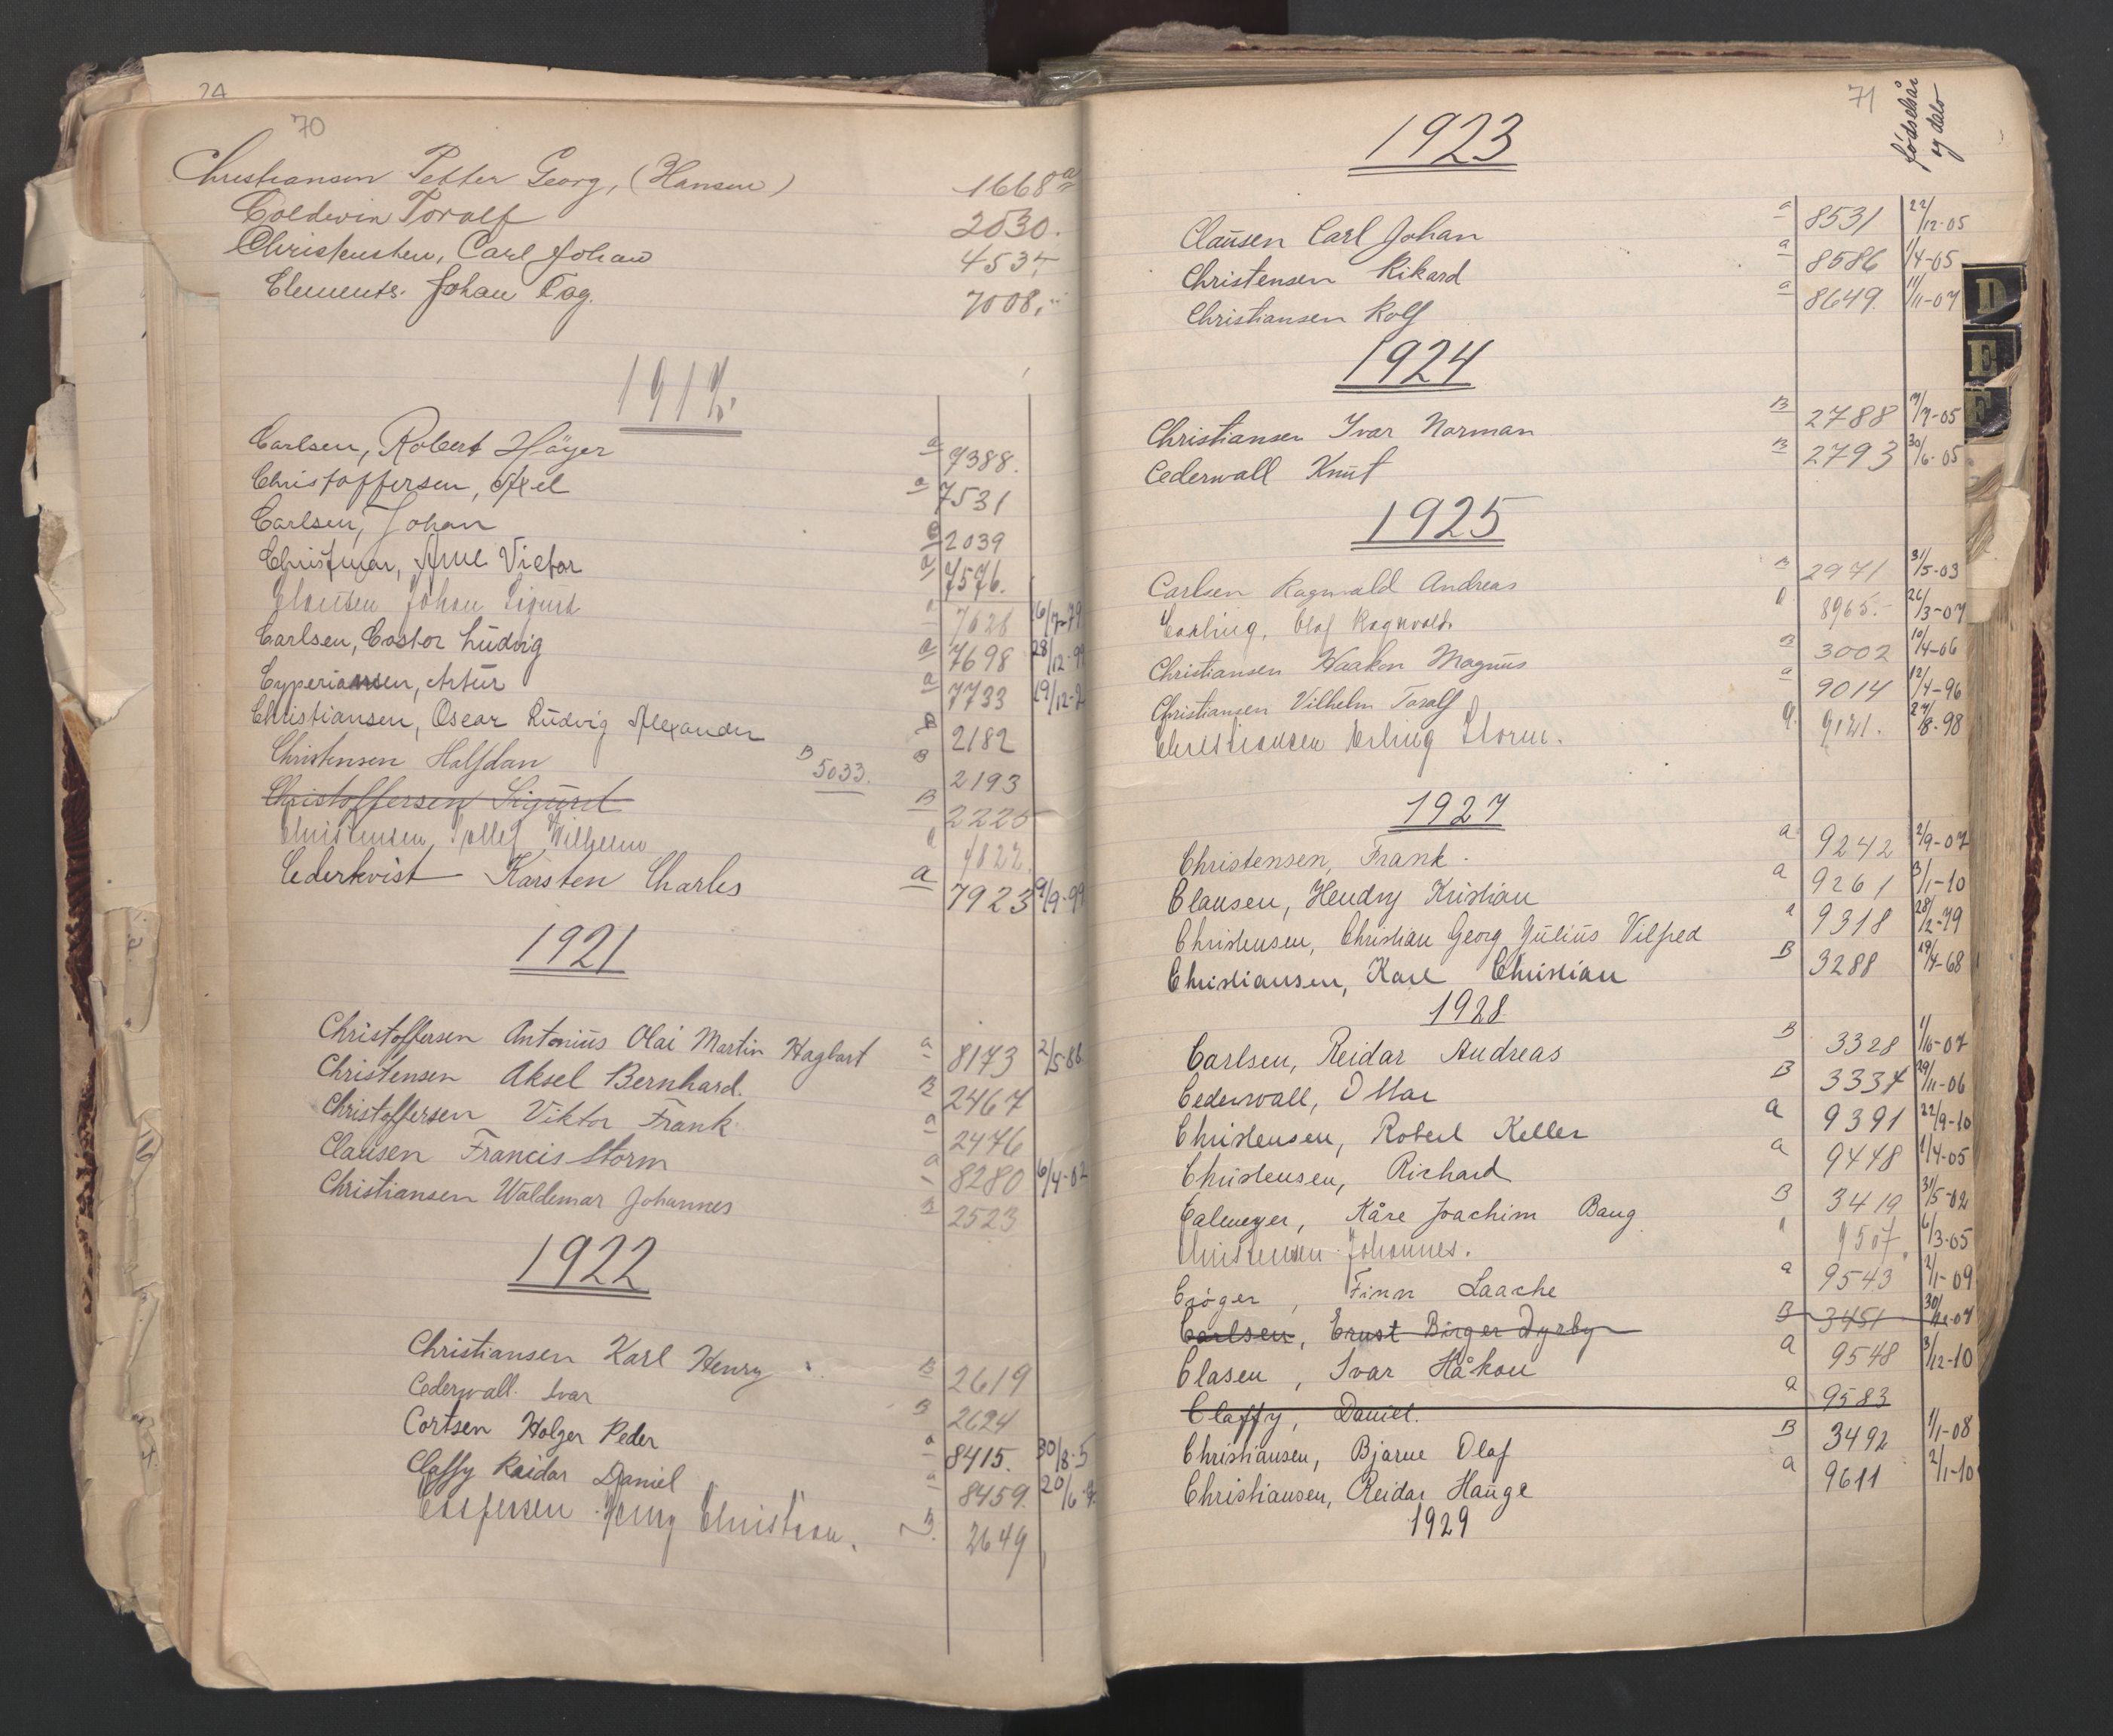 24
70
Christiansen Petter Georg, (Hansen) 1668 a
Coldevin Toralf 2030.
Christensen, Carl Johan 4534
Clements. Johan Tag. 7008.
Carlsen, Robert Höyer a 7388.
Christoffersen, Axel a 7531
Carlsen, Johan B 2039
Arne Victor a 7576.
Clausen Johan Sigurd a 7628 16/7-79
Carlsen, Castor Ludvig a 7698 28/12-99
Cyperiansen, Artur a 7733 19/12-
Christiansen, Oscar Ludvig Alexander B 2182
Christensen Halfdan B 5033. B 2193
Christoffersen Sigurd B 2225
Christensen, Wilhelm a 7822.
Cederkvist Karsten Charles a 7923 9/9-99
1921
Christoffersen Antonius Olai Martin Hagbart a 8173 2/5-88
Christensen Aksel Bernhard. B 2467
Christoffersen Viktor Frank a 2476
Clausen Francis Storm a 8280 6/4-02
Christiansen Waldemar Johannes B 2523
1922
Christiansen Karl Henry B 2619
Cederwall Ivar B 2624
Cortsen Holger Peder a 8415. 30/8-5
Claffy Reidar Daniel a 8459. 20/6-
Casperssen Henry Christian. B. 2649
71
fødselsår
og dato
1923
Clausen Carl Johan a 8531 22/12-05
Christensen Rikard a 8586 1/4-05
Christiansen Rolf a 8649. 11/11-07
1924
Christiansen Ivar Norman B 2788 7/7-05
Cederwall Knut B 2793 30/6-05
1925
Carlsen Ragnvald Andreas B 2971 31/5-03
Carling, Olaf Ragnvald. a 8965.- 26/3-07
Christiansen Haakon Magnus B 3002 10/4-06
Christiansen Vilhelm Toralf a 9014 12/4-96
Christiansen Erling Storm. a. 9121. 27/8-98
1927
Christensen, Frank. a 9242 2/9-07
Clausen, Hendry Kristian a 9261 3/1-10
Christensen, Christian Georg Julius Vilfred a 9318 28/12-79
Christiansen, Karl Christian B 3288 29/4-68
1928
Carlsen, Reidar Andreas B 3328 1/6-07
Cederwall, Ottar B 3334 29/11-06
Christensen, Robert Keller a 9391 22/9-10
Christensen, Richard a 9448 1/4-05
Calmeyer, Kåre Joachim Baug B 3419 31/5-02
Christensen Johannes. a 9507. 6/3-05
Cröger, Finn Laache a 9543 2/1-09
Carlsen, Ernst Birger Dyrby B 3451 30/-07
Clasen, Ivar Håkon a 9548 3/12-10
Claffy, Daniel. a 9583
Christiansen, Bjarne Olaf B 3492 1/1-08
Christiansen, Reidar Hauge a 9611 2/1-10
1929
D
E
F